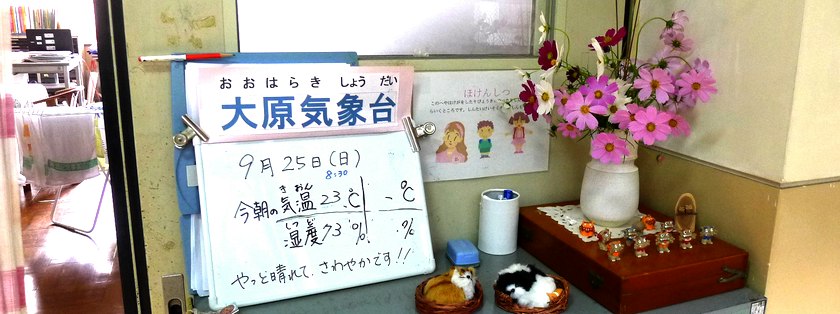 おおはらきしょうだい
大原気象台
9月25日(日)
8:30
きおん
今朝の気温23℃
℃
しつど
湿度73%
%
やっと晴れて、さわやかです!!
ほけんしつ